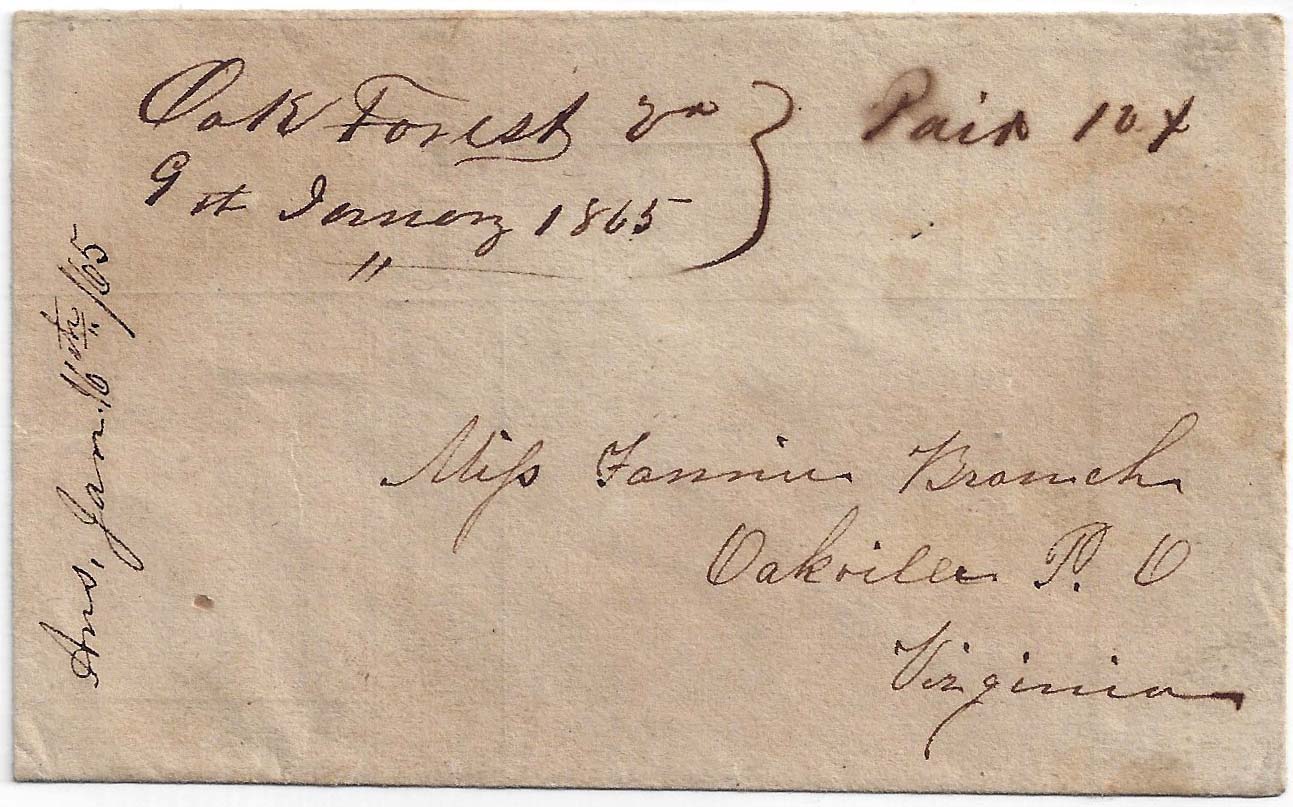 Oak Forest Va } Paid 10 ¢
9th January 1865 "
Miss Fannie Branch
Oakville P. O
Virginia
Ans, Jan. 16th/65